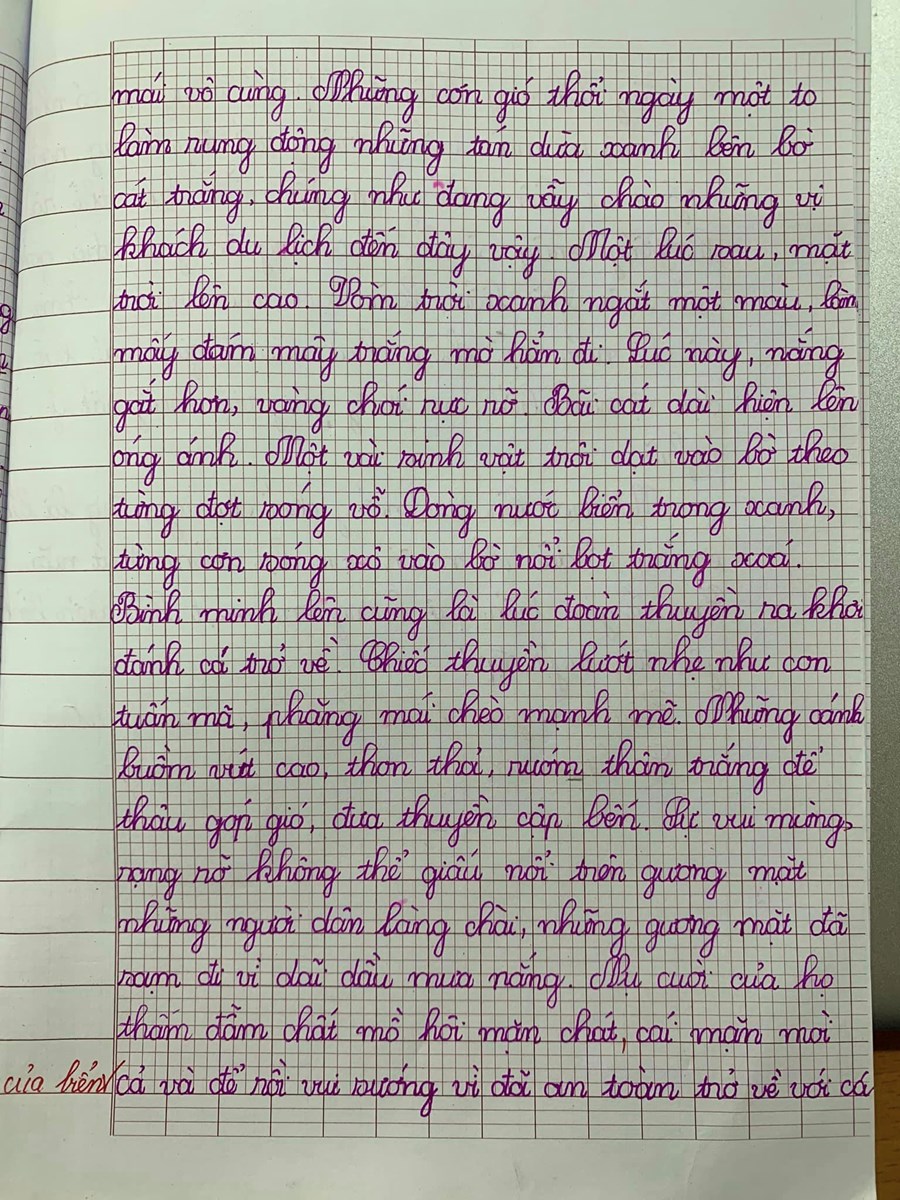 mái vô cùng. Những cơn gió thổi ngày một to
làm rung động những tán dừa xanh bên bờ
cát trắng, chúng như đang vẫy chào những vị
khách du lịch đến đây vậy. Một lúc sau, mặt
trời lên cao. Vòm trời xanh ngắt một màu, làm
mấy đám mây trắng mờ hẳn đi. Lúc này, nắng
gắt hơn, vàng chói rực rỡ. Bãi cát dài hiện lên
óng ánh. Một vài sinh vật trôi dạt vào bờ theo
từng đợt sóng vỗ. Dòng nước biển trong xanh,
từng cơn sóng xô vào bờ nổi bọt trắng xoá.
Bình minh lên cũng là lúc đoàn thuyền ra khơi
đánh cá trở về. Chiếc thuyền lướt nhẹ như con
tuấn mã, phăng mái chèo mạnh mẽ. Những cánh
buồm vút cao, thon thả, rướm thân trắng để
thâu góp gió, đưa thuyền cập bến. Sự vui mừng,
rạng rỡ không thể giấu nổi trên gương mặt
những người dân làng chài, những gương mặt đã
sạm đi vì dãi dầu mưa nắng. Nụ cười của họ
thấm đẫm chất mồ hôi mặn chát, cái mặn mòi
của biển cả và để rồi vui sướng vì đã an toàn trở về với cá